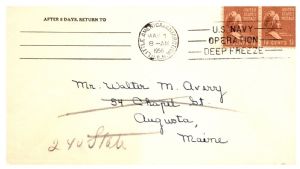 AFTER 5 DAYS, RETURN TO
8-AM
1956
U.S. NAVY
OPERATION
DEEP FREEZE
Mr. Walter M. Avery
54 Chapel St
Augusta,
Maine
240 State